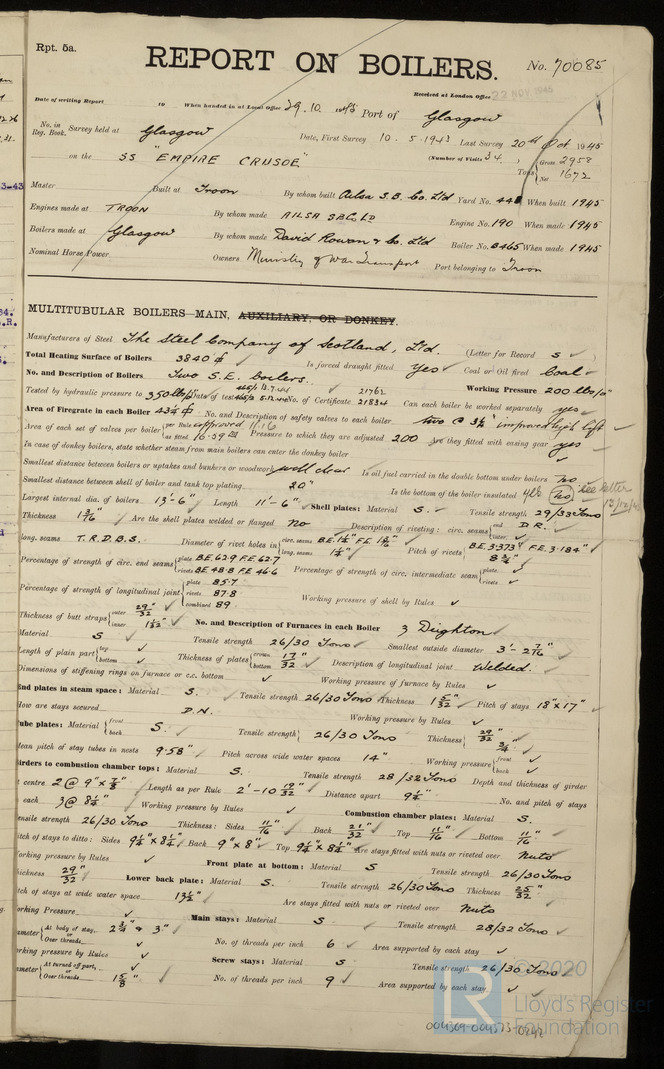 Rpt. 5a.
REPORT ON BOILERS.
No. 70085
Received at London Office 22 NOV 1945
Date of writing Report 19 When handed in at Local Office 29.10.1945 Port of Glasgow
No. in Reg. Book. Survey held at Glasgow Date, First Survey 10-5-1943 Last Survey 20th Oct 1945
on the SS "EMPIRE CRUSOE" (Number of Visits 34) Tons Gross 2958 Net 1672
Master Built at Troon By whom built Ailsa S.B. Co. Ltd Yard No. When built 1945
Engines made at TROON By whom made AILSA S.B.Co LD Engine No. 190 When made 1945
Boilers made at Glasgow By whom made David Rowan & Co. Ltd Boiler No. B465 When made 1945
Nominal Horse Power Owners Ministry of War Transport Port belonging to Troon
MULTITUBULAR BOILERS—MAIN, AUXILIARY, OR DONKEY.
Manufacturers of Steel The Steel Company of Scotland, Ltd. (Letter for Record S ✓)
Total Heating Surface of Boilers 3840 ✓ Is forced draught fitted Yes ✓ Coal or Oil fired Coal ✓
No. and Description of Boilers Two S.E. boilers. ✓ Working Pressure 200 lbs/□"
Tested by hydraulic pressure to 350 lbs Date of test No. of Certificate 21762 21834 Can each boiler be worked separately yes ✓
Area of Firegrate in each Boiler No. and Description of safety valves to each boiler two @ 3½" improved high lift ✓
Area of each set of valves per boiler per Rule approved 11.16 as fitted 16.59 Pressure to which they are adjusted 200 Are they fitted with easing gear yes ✓
In case of donkey boilers, state whether steam from main boilers can enter the donkey boiler ✓
Smallest distance between boilers or uptakes and bunkers or woodwork well clear Is oil fuel carried in the double bottom under boilers no
Smallest distance between shell of boiler and tank top plating 20" Is the bottom of the boiler insulated yes no see letter
Largest internal dia. of boilers 13'-6" Length 11'-6" Shell plates: Material S. ✓ Tensile strength 29/33 Tons
Thickness 1 3/16" Are the shell plates welded or flanged No Description of riveting: circ. seams end D.R. inter. ✓
long. seams T.R.D.B.S. Diameter of rivet holes in circ. seams long. seams 1¼" Pitch of rivets B.E. 3.373" F.E. 3.184"
Percentage of strength of circ. end seams plate B.E. 62.9 F.E. 62.7 rivets B.E. 48.8 F.E. 46.6 Percentage of strength of circ. intermediate seam plate ✓ rivets ✓
Percentage of strength of longitudinal joint plate 85.7 rivets 87.8 combined 89 Working pressure of shell by Rules ✓
Thickness of butt straps outer 29/32" inner No. and Description of Furnaces in each Boiler 3 Deighton ✓
Material S ✓ Tensile strength 26/30 Tons Smallest outside diameter 3'-2 7/16"
Length of plain part top ✓ bottom ✓ Thickness of plates crown bottom 17/32" Description of longitudinal joint Welded.
Dimensions of stiffening rings on furnace or c.c. bottom ✓ Working pressure of furnace by Rules ✓
End plates in steam space: Material S. Tensile strength 26/30 Tons Thickness 1 5/32" Pitch of stays 18" x 17" ✓
How are stays secured D.N. Working pressure by Rules ✓
Tube plates: Material front back S. ✓ Tensile strength 26/30 Tons Thickness 29/32" 3/4"
Mean pitch of stay tubes in nests 9.58" ✓ Pitch across wide water spaces 14" Working pressure front ✓ back ✓
Girders to combustion chamber tops: Material S. Tensile strength 28/32 Tons Depth and thickness of girder
at centre 2 @ 9" x 7/8" Length as per Rule 2'-10 19/32" Distance apart 9¼" No. and pitch of stays
in each 3 @ 8¼" Working pressure by Rules ✓ Combustion chamber plates: Material S.
Tensile strength 26/30 Tons Thickness: Sides 11/16" Back 21/32" Top 11/16" Bottom 11/16"
Pitch of stays to ditto: Sides 9¼" x 8¼" Back 9" x 8" Top 9¼" x 8¼" Are stays fitted with nuts or riveted over Nuts
Working pressure by Rules ✓ Front plate at bottom: Material S Tensile strength 26/30 Tons
Thickness 29/32" Lower back plate: Material S. Tensile strength 26/30 Tons Thickness 25/32"
Pitch of stays at wide water space 13½" Are stays fitted with nuts or riveted over Nuts
Working Pressure ✓ Main stays: Material S Tensile strength 28/32 Tons
Diameter At body of stay, or Over threads 2¾" & 3" No. of threads per inch 6 Area supported by each stay ✓
Working pressure by Rules ✓ Screw stays: Material S Tensile strength 26/30 Tons
Diameter At turned off part, or Over threads 1 5/8" No. of threads per inch 9 Area supported by each stay ✓
© 2020
LR
Lloyd's Register
Foundation
004569-004573-0242